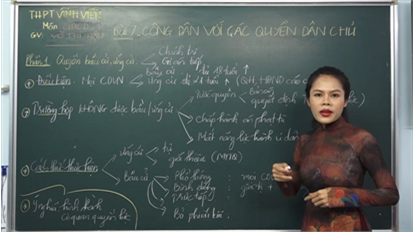 THPT VĨNH VIỄN
Môn:
GV:
Bài 7. CÔNG DÂN VỚI CÁC QUYỀN DÂN CHỦ
Phần 1 Quyền bầu cử, ứng cử
Chính trị
Gián tiếp
Điều kiện: Mọi CDVN
Bầu cử từ 18 tuổi ↑
Ứng cử đủ 21 tuổi ↑ (QH, HĐND
Trường hợp KHÔNG được bầu/ứng cử
Tước quyền
Bản án
quyết định
Chấp hành án phạt tù
Mất năng lực hành vi dân
Cách thức thực hiện
Ứng cử
tự
giới thiệu (MTTQ)
Bầu cử
Phổ thông:
Bình đẳng:
Trực tiếp:
Bỏ phiếu kín:
hình thành
cơ quan quyền lực